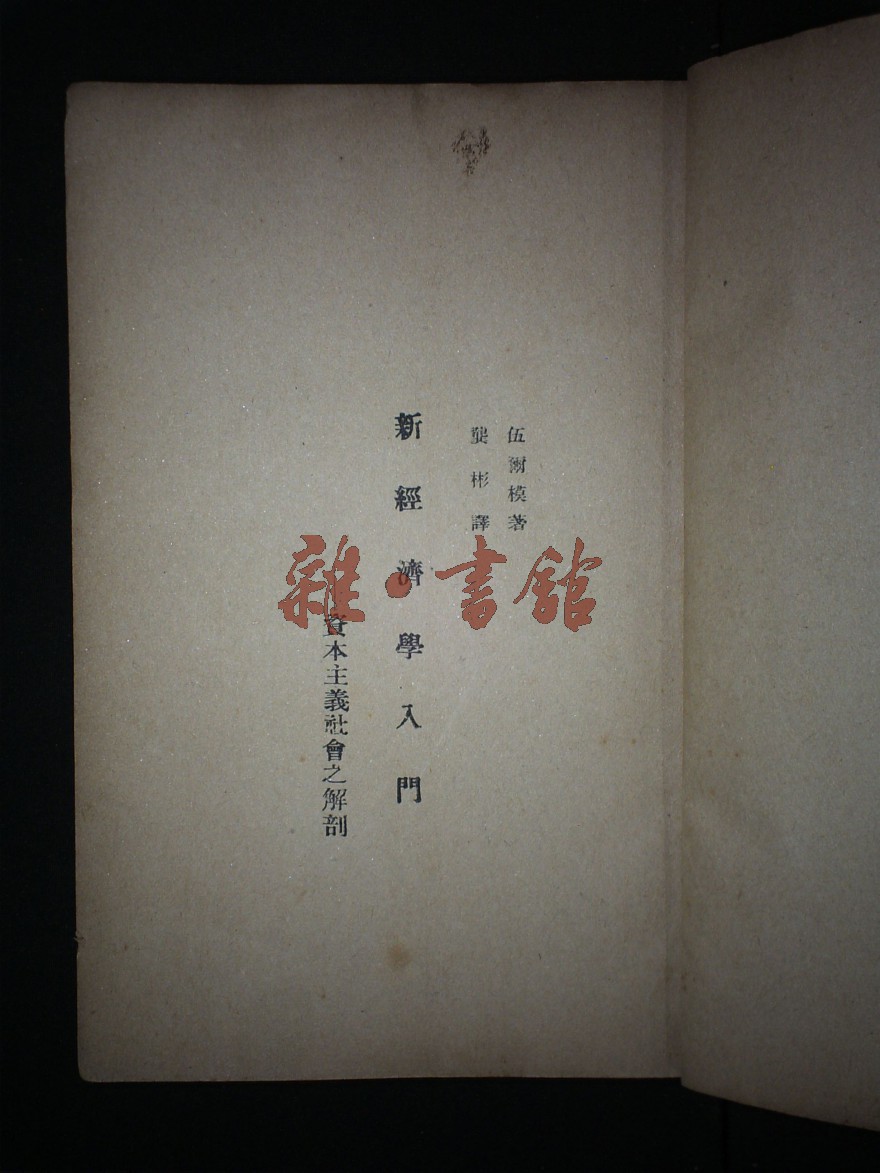 伍爾模著
龔彬譯
新經濟學入門
資本主義社會之解剖
雜·書館